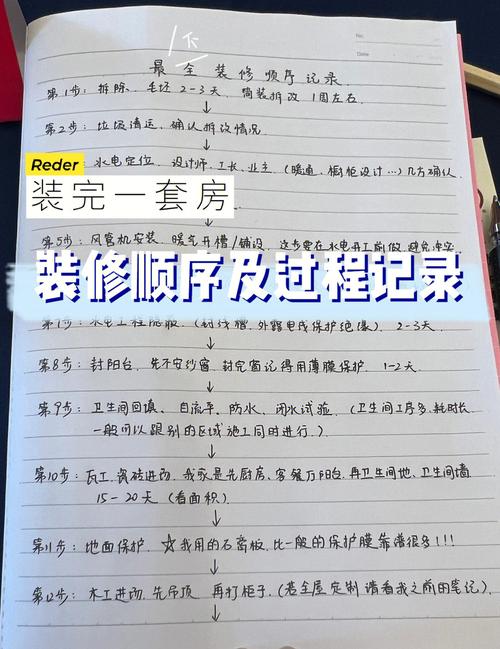 No.
Date
1下
最全装修顺序记录
第1步：拆除、毛坯2-3天 简装拆改 1周左右
第2步：垃圾清运、确认拆改情况
Reder
水电定位、设计师、工长、业主（暖通、橱柜设计…）几方确认
装完一套房
第5步：风管机安装、暖气开槽/铺设，这步要在水电开工前做，避免冲突
装修顺序及过程记录
第7步：水电工程隐蔽（封线槽、外露电线保护绝缘）2-3天
第8步：封阳台，先不安纱窗，封完窗记得用薄膜保护、1-2天
第9步：卫生间回填、自流平、防水、闭水试验、（卫生间工序多、耗时长、
一般可以跟别的区域施工同时进行）
第10步：瓦工、瓷砖进场，我家是先厨房、客餐厅阳台，再卫生间地、卫生间墙
15-20天（看面积）
第11步：地面保护、☆我用的石膏板，比一般的保护膜靠谱很多!!!
第12步：木工进场，先吊顶 再打柜子，（若全屋定制请看我之前的笔记）